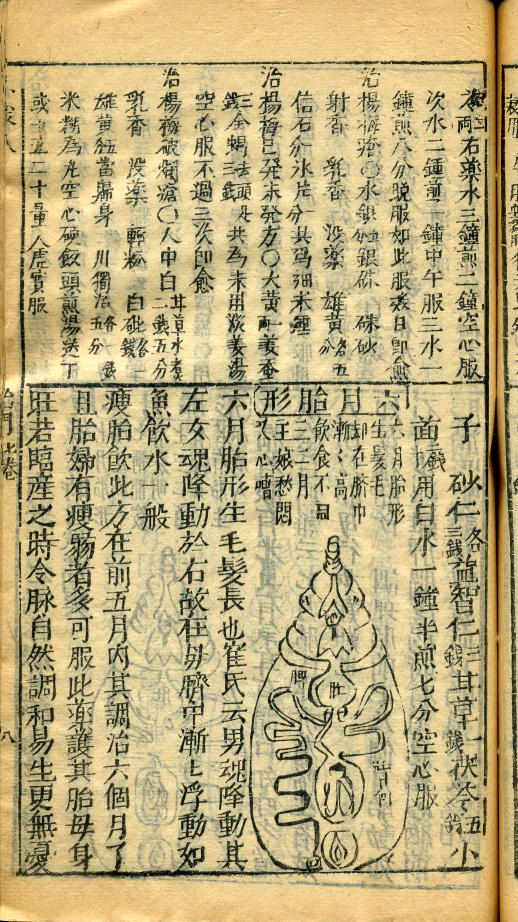 右藥水三鐘煎二鐘空心服
次水二鐘煎一鐘中午服三水一
鐘煎八分晚服如此服表日即愈
治楊梅瘡〇水銀 銀硃 硃砂
射香 乳香 沒藥 雄黃各五分
信石一分氷片一分共為細末
治楊梅已發未發方〇大黃一兩姜蚕
三錢全蝎去頭足三錢共為末用淡姜湯
空心服不過三次即愈
治楊梅破爛瘡〇人中白二錢五分甘草水煮
乳香 沒藥 輕粉 白砒各一錢
雄黃 當歸身 川獨活各五分
米糊為丸空心硬飯頭煎湯送下
或 二十量人虛實服
子 砂仁各三錢益智仁三錢甘草一錢茯苓五錢小
茴一錢用白水一鐘半煎七分空心服
六月胎形
六月胎形
生髮毛
却在臍中
漸漸高
飲食不同
三三月
王娘愁悶
又心嘈
脾
肚
六月胎形生毛髮長也崔氏云男魂降動其
左女魂降動於右故在母臍中漸上浮動如
魚飲水一般
瘦胎飲此方在前五月內其調治六個月了
且胎婦有瘦弱者多可服此藥護其胎母身
旺若臨産之時令脉自然調和易生更無憂
七卷
八